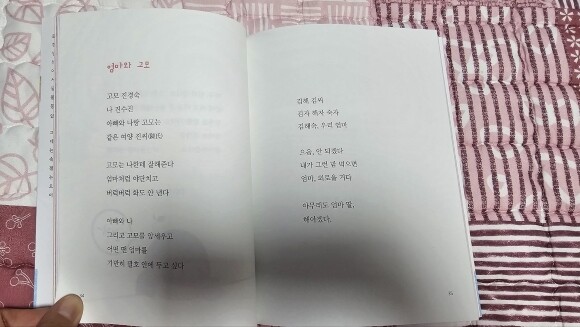 엄마와 고모
고모 진경숙
나 진수진
아빠와 나랑 고모는
같은 여양 진씨(陳氏)
고모는 나한테 잘해준다
엄마처럼 야단치고
버럭버럭 화도 안 낸다
아빠와 나
그리고 고모를 앞세우고
어떤 땐 엄마를
가만히 괄호 안에 두고 싶다
김해 김씨
김자 해자 숙자
김해숙, 우리 엄마
으음, 안 되겠다
내가 그런 맘 먹으면
엄마, 외로울 거다
아무래도 엄마 딸,
해야겠다.